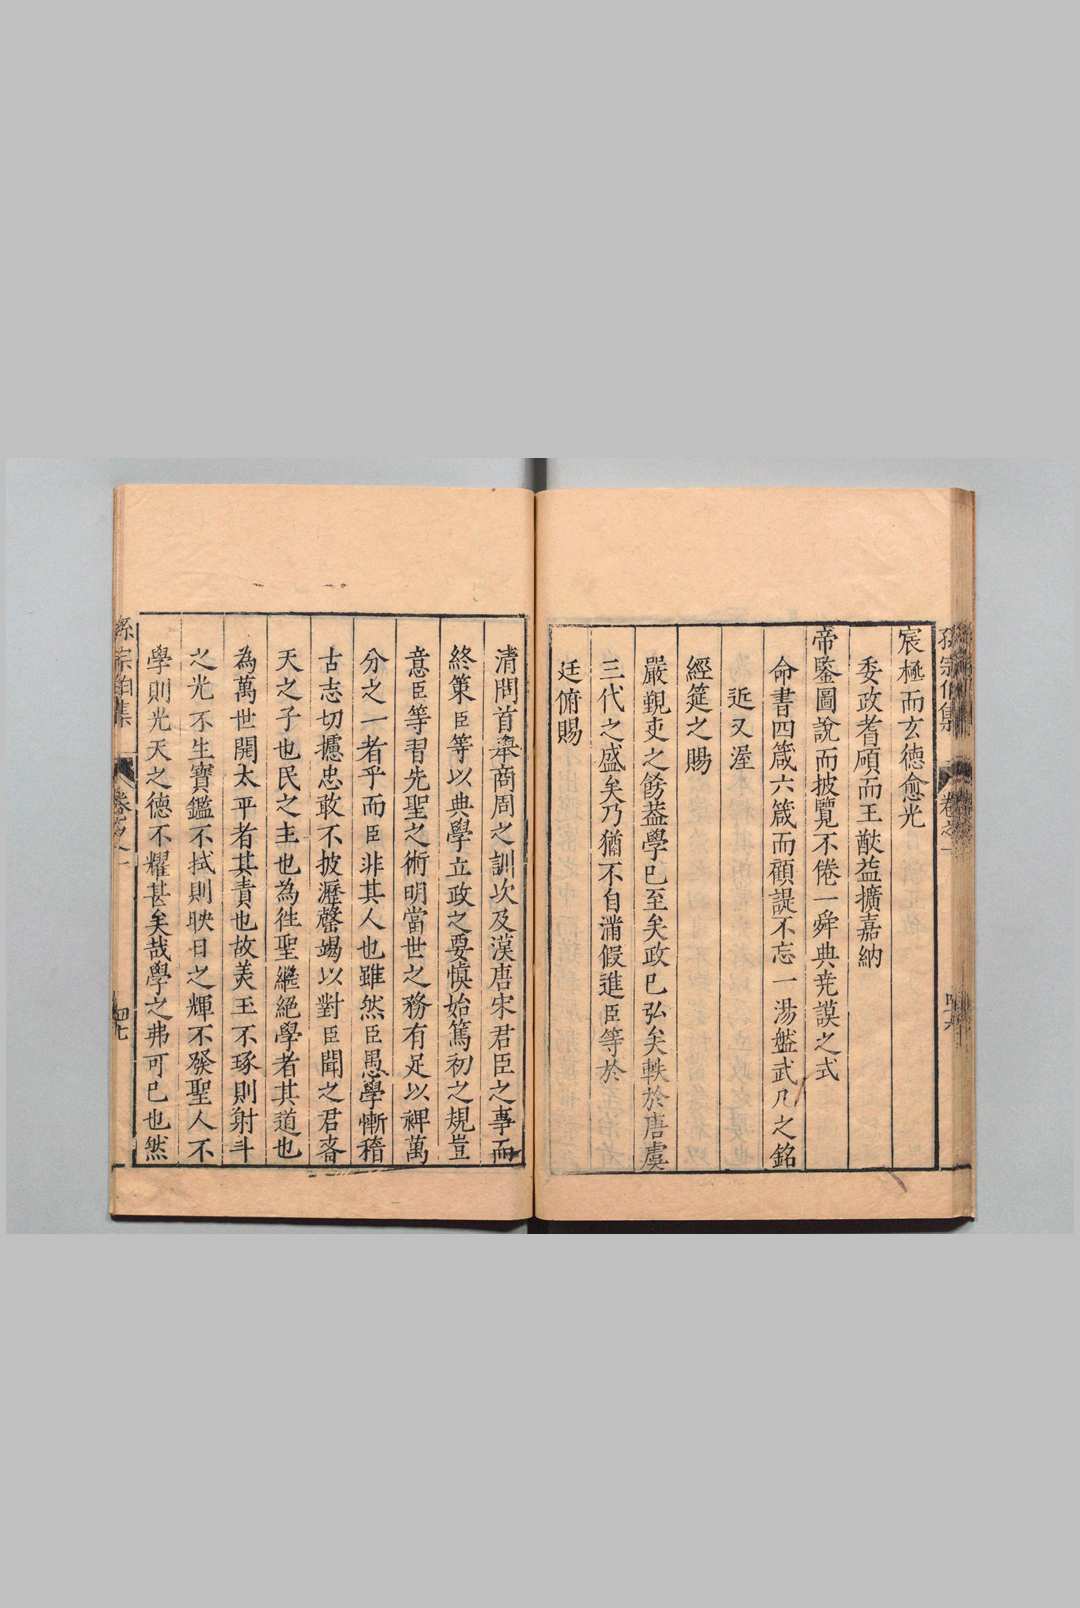 孫宗伯集
卷之一
宸極而玄德愈光
委政耆碩而王猷益擴嘉納
帝鑒圖說而披覽不倦一舜典堯謨之式
命書四箴六箴而顧諟不忘一湯盤武几之銘
近又渥
經筵之賜
嚴覲吏之飭葢學已至矣政已弘矣軼於唐虞
三代之盛矣乃猶不自滿假進臣等於
廷俯賜
清問首舉商周之訓次及漢唐宋君臣之事而
終策臣等以典學立政之要愼始篤初之規豈
意臣等習先聖之術明當世之務有足以裨萬
分之一者乎而臣非其人也雖然臣愚學慚稽
古志切攄忠敢不披瀝罄竭以對臣聞之君者
天之子也民之主也為徃聖繼絕學者其道也
為萬世開太平者其責也故美玉不琢則射斗
之光不生寶鑑不拭則映日之輝不發聖人不
學則光天之德不耀甚矣哉學之弗可已也然
孫宗伯集
卷之一
四九